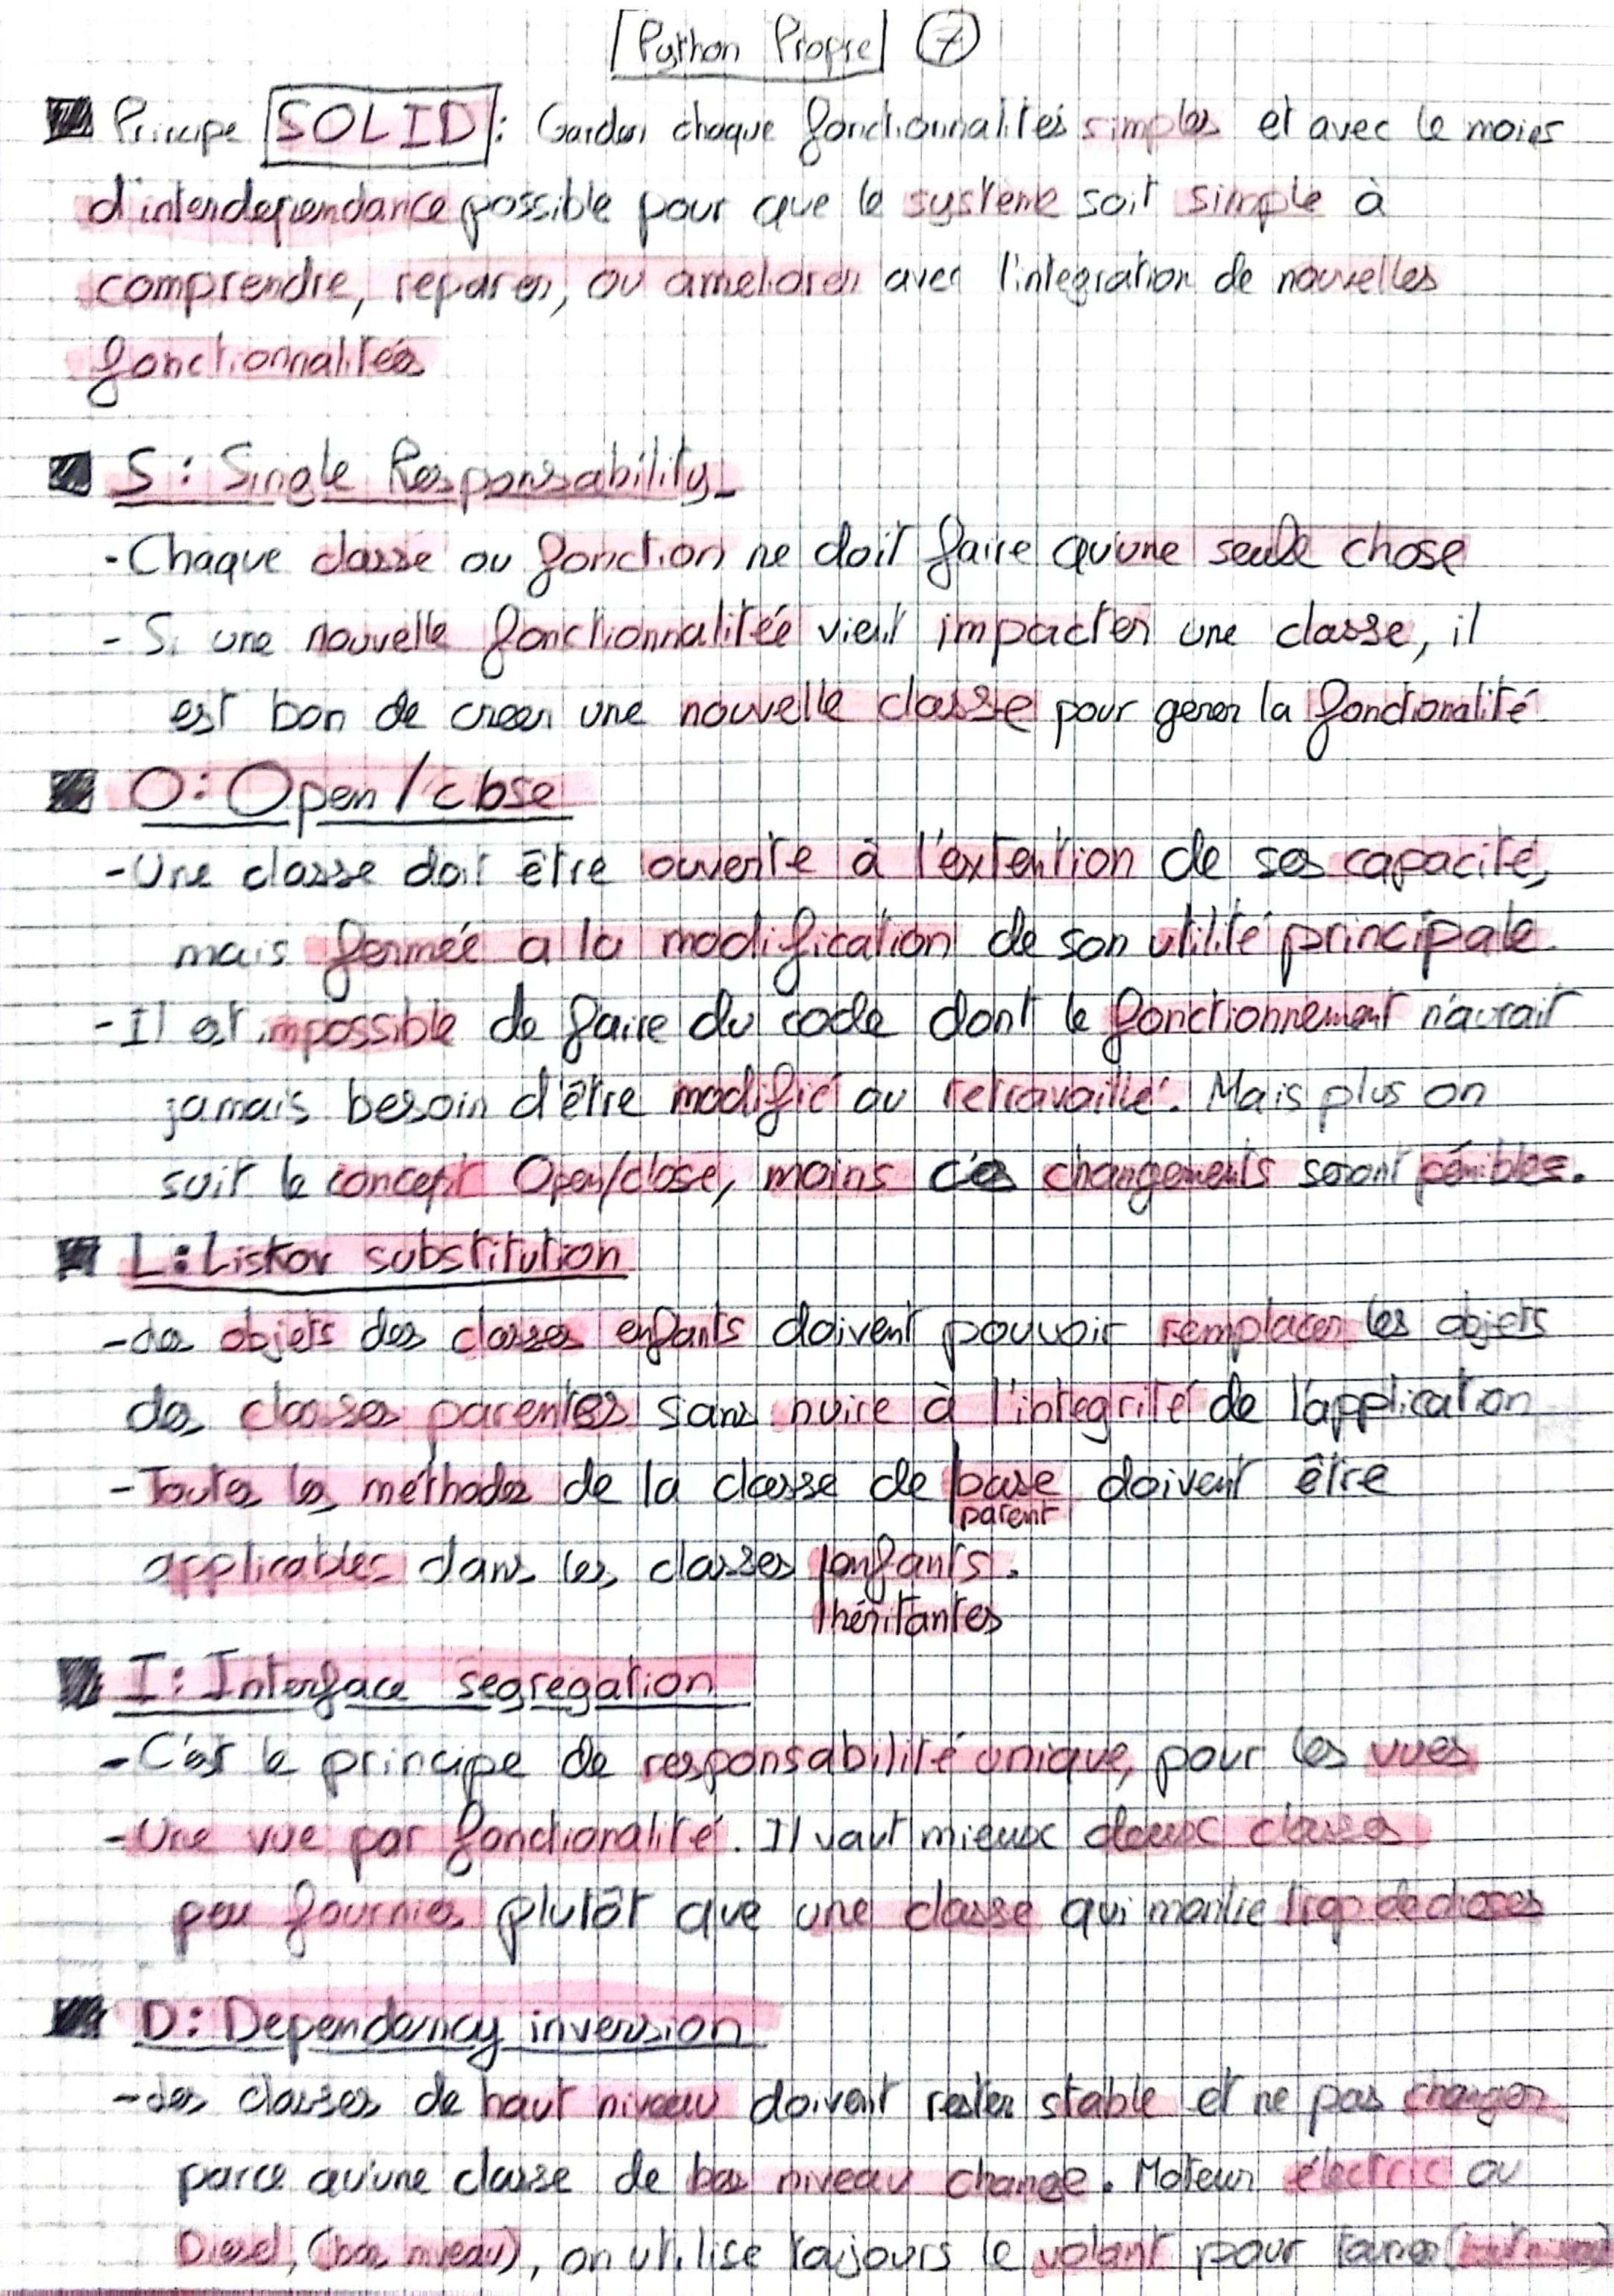 Python Propre 7
Principe SOLID : Garder chaque fonctionnalités simples et avec le moins
d'interdependance possible pour que le système soit simple à
comprendre, reparer, ou ameliorer avec l'integration de nouvelles
fonctionnalités
S : Single Responsability
- Chaque classe ou fonction ne doit faire qu'une seule chose
- Si une nouvelle fonctionnalitée vient impacter une classe, il
est bon de creer une nouvelle classe pour gerer la fonctionalité
O : Open / close
- Une classe doit être ouverte à l'extention de ses capacité,
mais fermée a la modification de son utilité principale.
- Il est impossible de faire du code dont le fonctionnement n'aurait
jamais besoin d'être modifié ou retravaillé. Mais plus on
suit le concept Open/close, moins ces changements seront pénibles.
L : Liskov substitution
- des objets des classes enfants doivent pouvoir remplacer les objets
des classes parentes sans nuire à l'integrité de l'application
- Toutes les méthodes de la classe de base doivent être
parent
applicables dans les classes enfants.
héritantes
I : Interface segregation
- C'est le principe de responsabilité unique, pour les vues
- Une vue par fonctionalité. Il vaut mieux deux classes
peu fournies plutôt que une classe qui montre trop de choses
D : Dependancy inversion
- des classes de haut niveau doivent rester stable et ne pas changer
parce qu'une classe de bas niveau change. Moteur électric ou
Diesel, (bas niveau), on utilise toujours le volant pour tourner